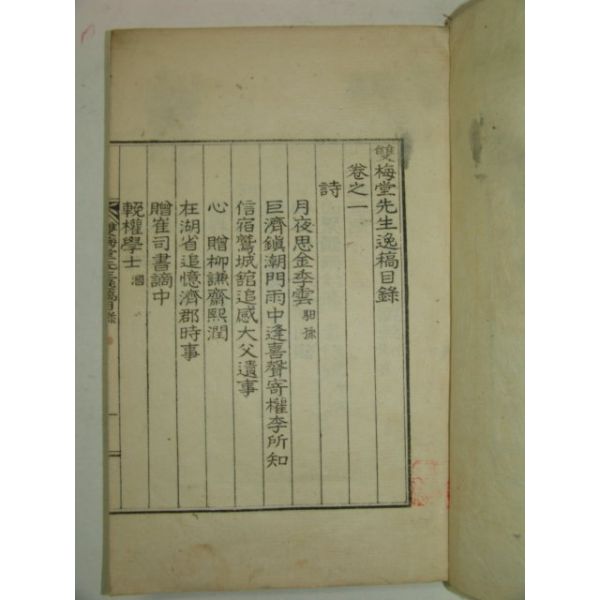 雙梅堂先生逸稿目錄
卷之一
詩
月夜思金季雲 馹孫
巨濟鎮潮門雨中逢喜聲寄權李所知
信宿鷲城館追感大父遺事
心 贈柳謙齋熙潤
在湖省追憶濟郡時事
贈崔司書謫中
輓權學士
雙梅堂先生逸稿目錄
一